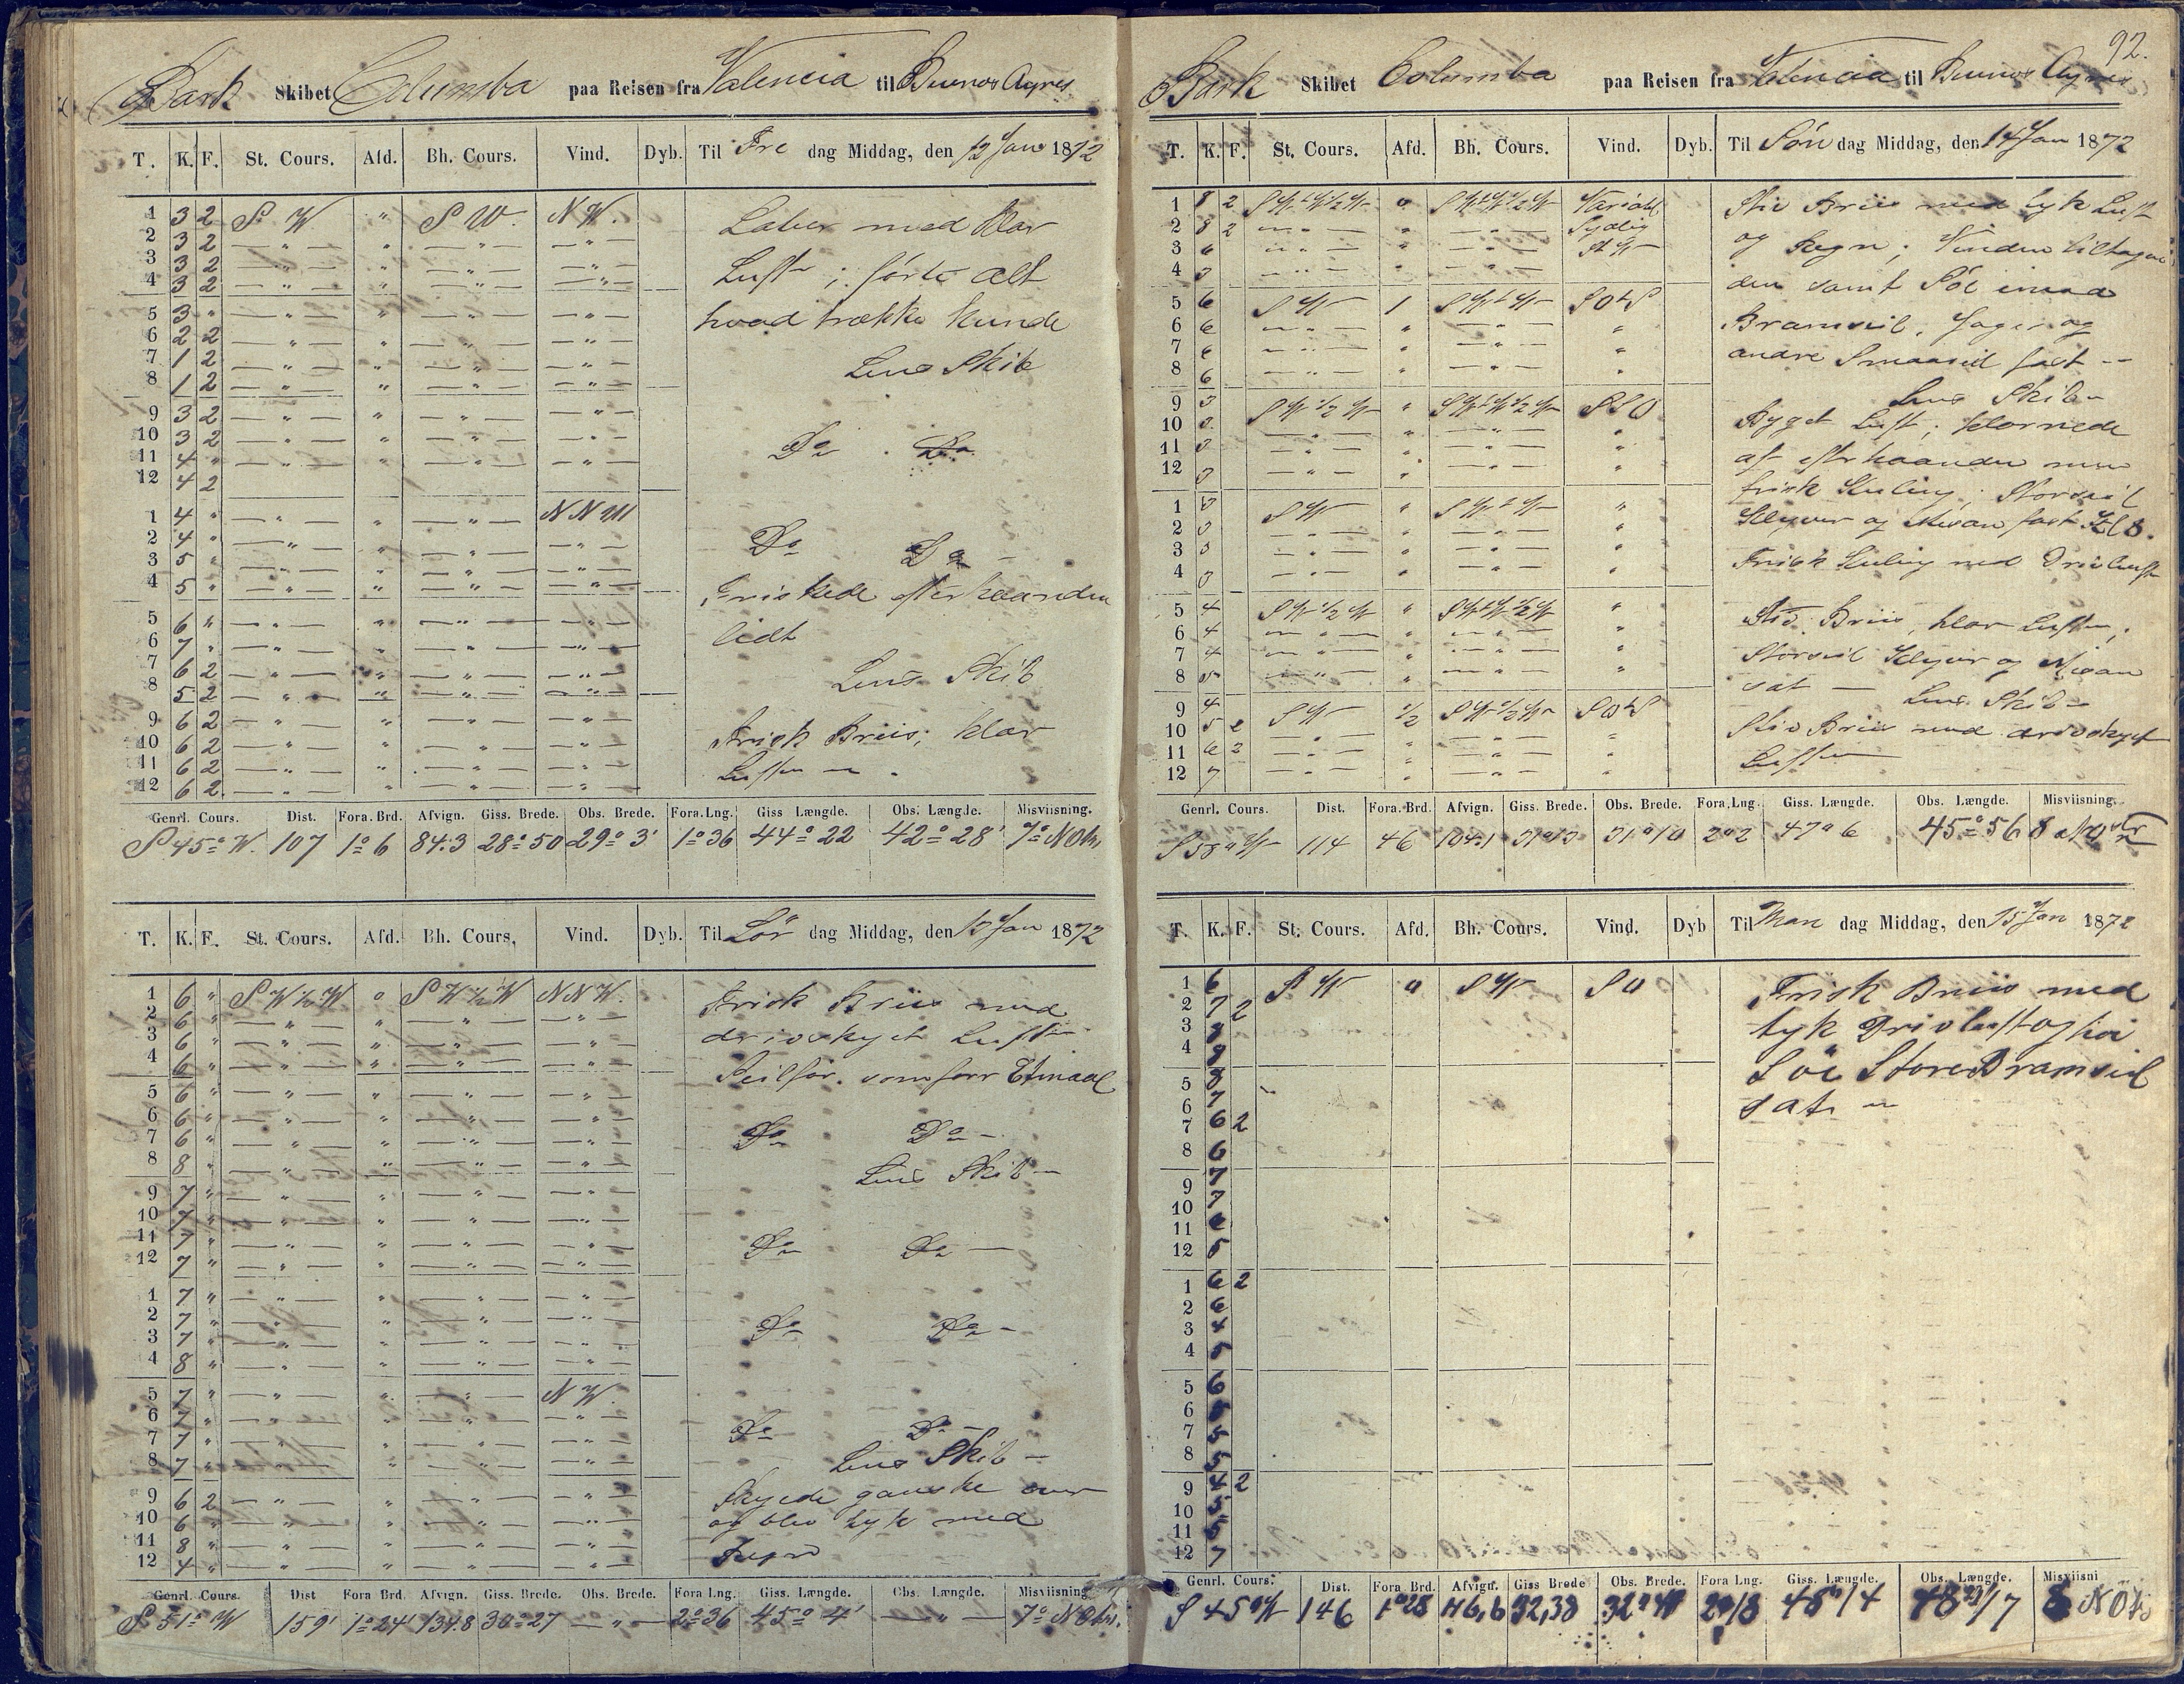 Bark Skibet Columba paa Reisen fra Valencia til Buenos Ayres
T. K. F. St. Cours. Afd. Bh. Cours. Vind. Dyb. Til Fre dag Middag, den 12 Jan 1872
1 3 2 S W " S W. N W. Laber med klar
2 3 2 — " — " — " — — " —
3 3 2 — " — " — " — — " — Luft ; førte alt
4 3 2 — " — " — " — — " —
5 3 " — " — " — " — — " — hvad trække kunde
6 2 2 — " — " — " — — " —
7 1 2 — " — " — " — — " — Lens Skib
8 1 2 — " — " — " — — " —
9 3 2 — " — " — " — — " —
10 3 2 — " — " — " — — " — Do Do
11 4 " — " — " — " — — " —
12 4 2
1 4 " — " — " — " — N N W
2 4 " — " — " — " — — " — Do Do -
3 5 " — " — " — " — — " —
4 5 " — " — " — " — — " — Friskede efterhaanden
5 6 " — " — " — " — — " — lidt
6 7 " — " — " — " — — " —
7 6 2 — " — " — " — — " — Lens Skib
8 5 2 — " — " — " — — " —
9 6 2 — " — " — " — — " — Frisk Briis; klar
10 6 2 — " — " — " — — " —
11 6 2 — " — " — " — — " — Luft
12 6 2 — " — " — " — — " —
Genrl. Cours. Dist. Fora. Brd. Afvign. Giss. Brede. Obs. Brede. Fora. Lng. Giss Længde. Obs. Længde. Misviisning.
S 45° W. 107 1° 6 84.3 28° 50 29° 3' 1° 36 44° 22 42° 28' 7°
T. K. F. St. Cours. Afd. Bh. Cours. Vind. Dyb. Til Lör dag Middag, den 13 Jan 1872
1 6 " S W ½ W " S W ½ W N N W. Frisk Briis med
2 6 " — " — " — " — — " —
3 6 " — " — " — " — — " — drivskyet Luft
4 6 " — " — " — " — — " — Seilför. som forr Etmaal
5 6 " — " — " — " — — " —
6 6 " — " — " — " — — " —
7 6 " — " — " — " — — " — Do Do -
8 8 " — " — " — " — — " — Lens Skib —
9 7 " — " — " — " — — " —
10 7 " — " — " — " — — " —
11 7 " — " — " — " — — " — Do Do —
12 7 " — " — " — " — — " —
1 7 " — " — " — " — — " —
2 7 " — " — " — " — — " — Do Do -
3 7 " — " — " — " — — " —
4 8 " — " — " — " — — " —
5 7 " — " — " — " — N W.
6 7 " — " — " — " — — " — Do Do -
7 7 " — " — " — " — — " — Lens Skib —
8 7 " — " — " — " — — " —
9 6 2 — " — " — " — — " — Skyede ganske over
10 6 " — " — " — " — — " — og blev tyk med
11 8 " — " — " — " — — " — Regn
12 4 " — " — " — " — — " —
Genrl. Cours. Dist Fora Brd. Afvign. Giss. Brede. Obs. Brede. Fora Lng. Giss. Længde. Obs. Længde. Misviisning
S 51° W 159' 1° 24' 134.8 30° 27 — " — 2° 36 45° 4' — " — 7°
92.
Bark Skibet Columba paa Reisen fra Valencia til Buenos Ayres
T. K. F. St. Cours. Afd. Bh. Cours. Vind. Dyb. Til Sön dag Middag, den 14 Jan 1872
1 8 2 Variabl Stiv Briis med tyk Luft
2 8 2 Sydlig og Regn; Vinden tiltagen
3 6
4 den samt Sö
5 6 S W 1 Bramseil, Jager og
6 6
7 6 andre Smaaseil fast —
8 6
9 S S O Lens Skib —
10 Byget Luft; klarnede
11 af efterhaanden men
12 frisk Kuling; Storseil
1 S W Klyver og Mesan fast
2
3 Frisk Kuling med Drivluft
4
5 4 Stiv Briis, klar Luft,
6 4
7 4 Storseil Klyver og Mesan
8 sat — Lens Skib —
9 4 S W ½
10 5 2 Stiv Briis med drivskyet
11 6 2 Luft
12 7
Genrl. Cours. Dist. Fora. Brd. Afvign. Giss. Brede. Obs. Brede. Fora. Lng. Giss. Længde. Obs. Længde. Misviisning.
114 46 104.1 31° 13 31° 10 2° 2 47° 6 45° 56
T. K. F. St. Cours. Afd. Bh. Cours. Vind. Dyb Til Man dag Middag, den 15 Jan 1872
1 6 S W " S W S O Frisk Briis med
2 7 2
3 8 tyk Drivluft og höi
4 8
5 8 Söe Store Bramseil
6 7 sat
7 6 2
8 6
9 7
10 7
11 6
12 5
1 6 2
2 6
3 4
4 5
5 6
6
7 5
8 5
9 4 2
10 5
11 5
12 7
Genrl. Cours. Dist. Fora Brd. Afvign. Giss Brede Obs. Brede. Fora Lng. Giss. Længde. Obs. Længde. Misviisni
S 45° W 146 1° 28 32,38 2° 18 48° 14